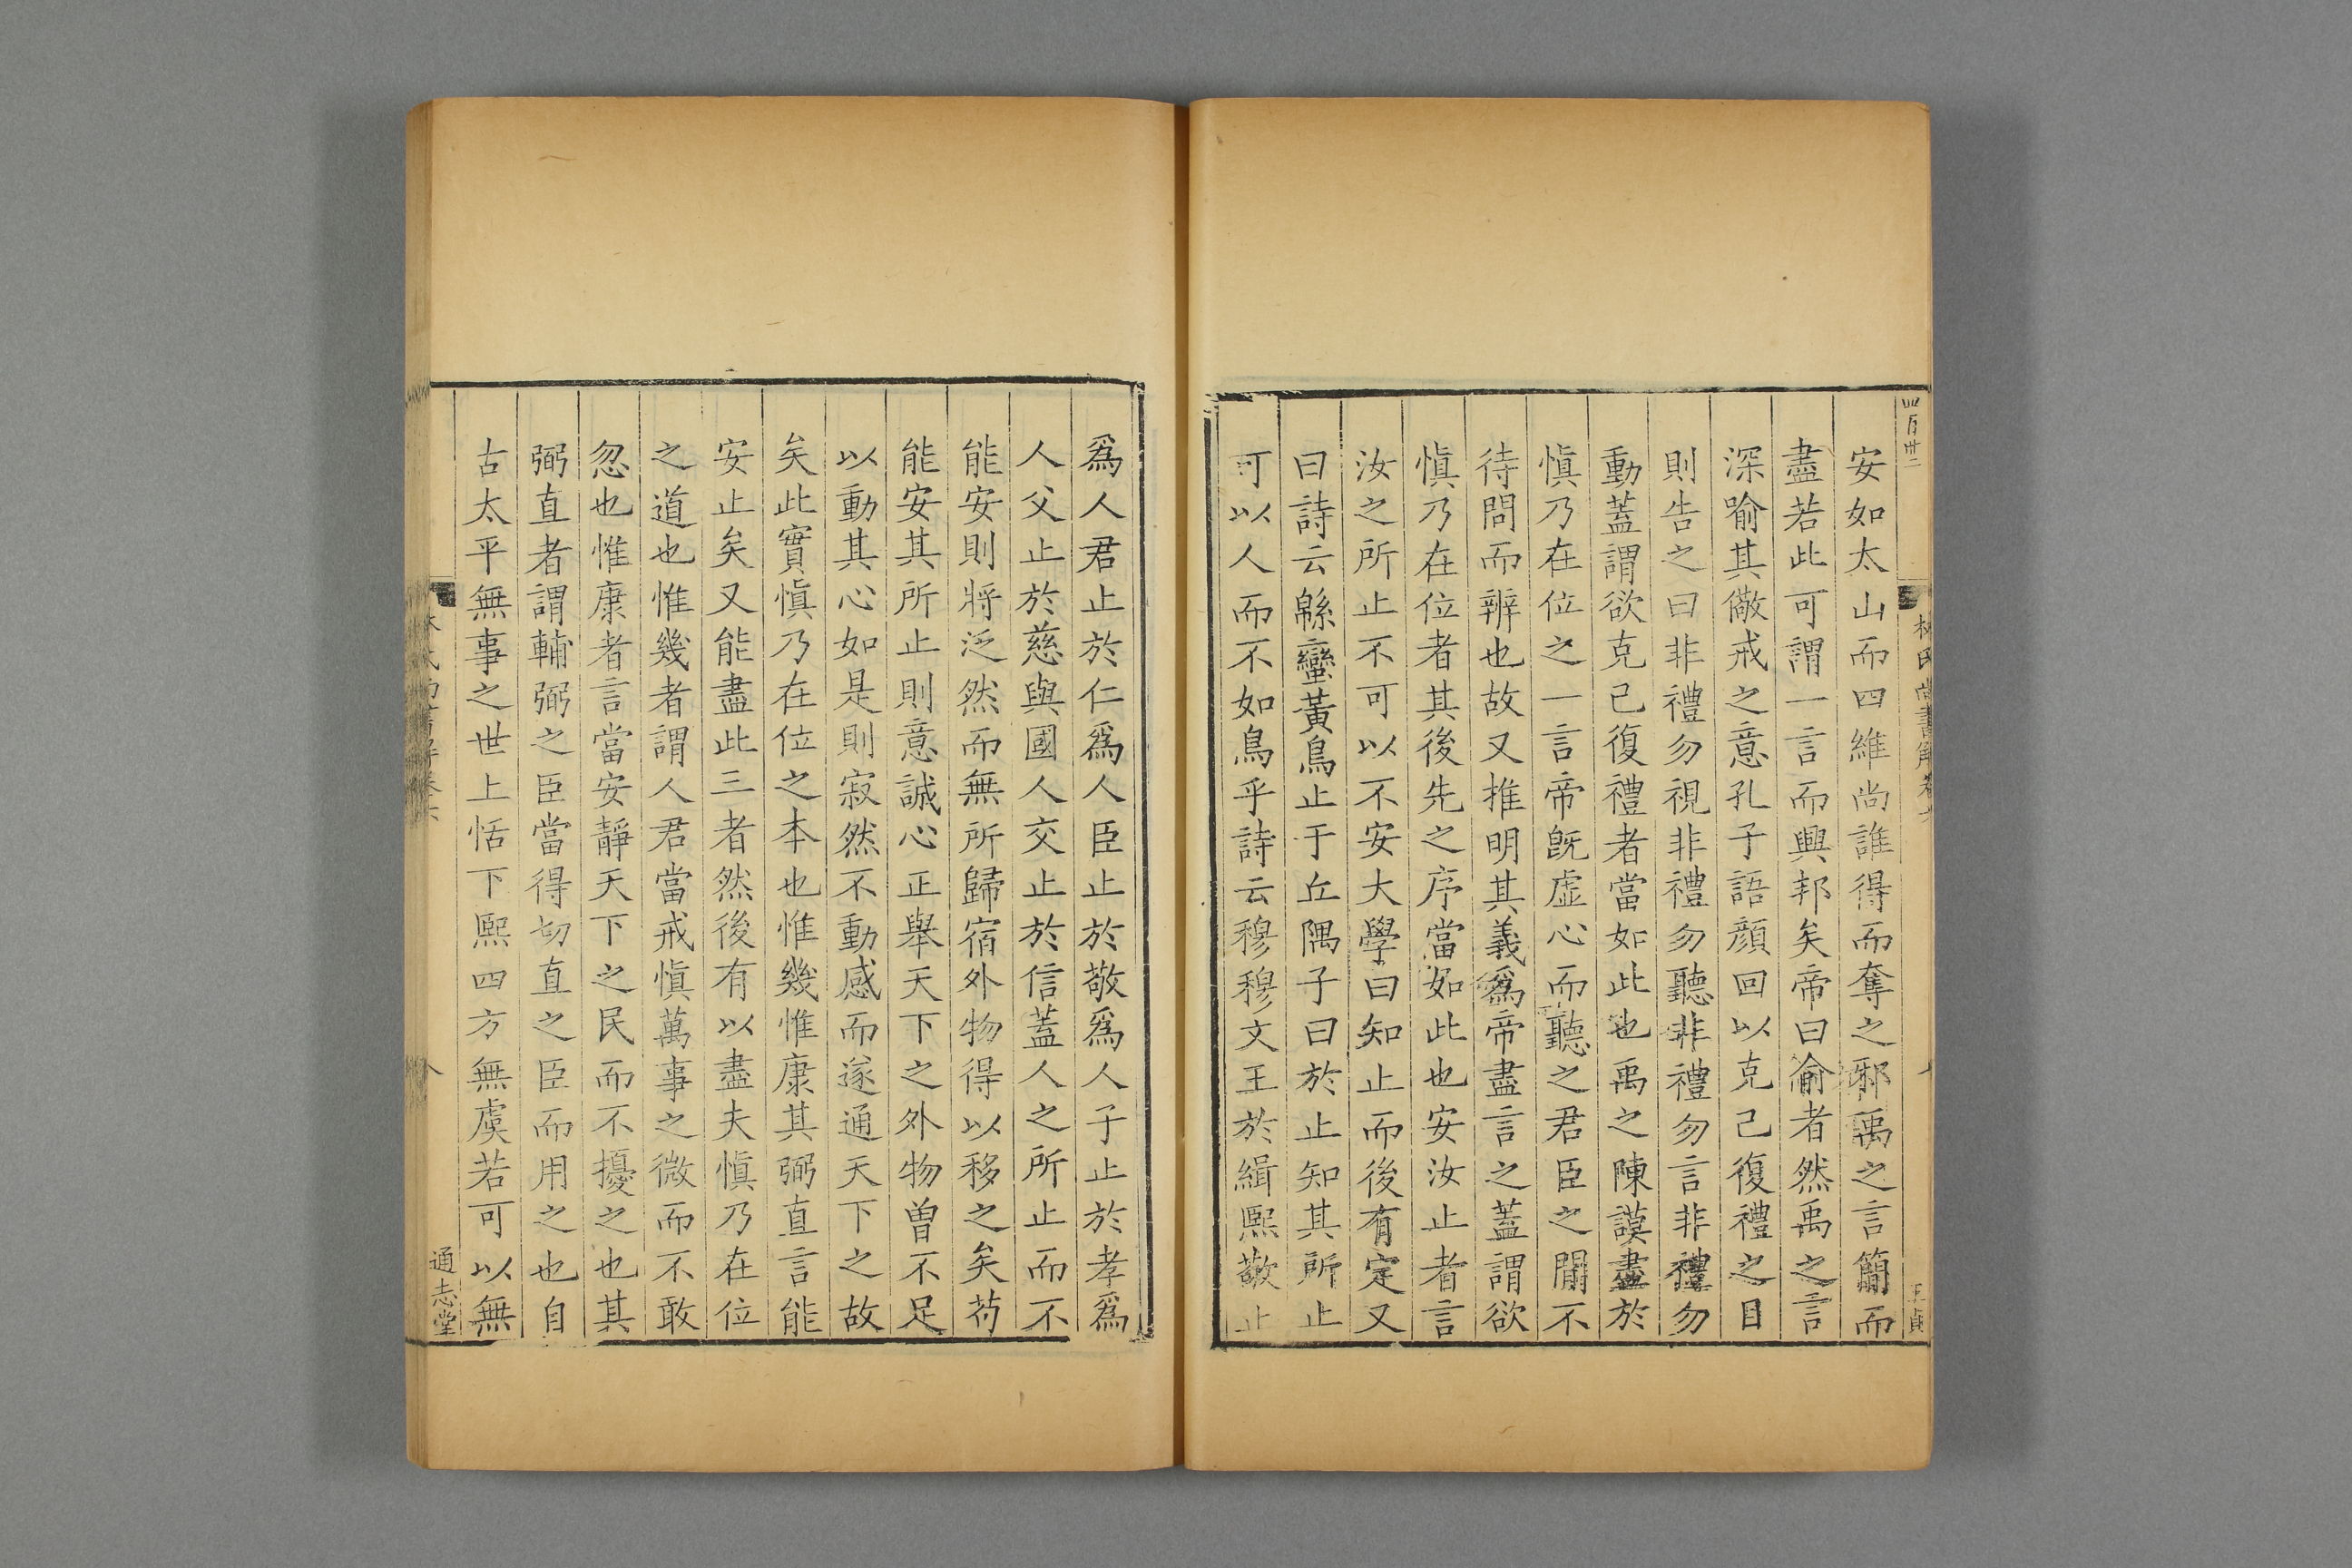 四百卅二
安如太山而四維尚誰得而奪之邪禹之言簡而
盡若此可謂一言而興邦矣帝曰俞者然禹之言
深喻其儆戒之意孔子語顏回以克己復禮之目
則告之曰非禮勿視非禮勿聽非禮勿言非禮勿
動蓋謂欲克己復禮者當如此也禹之陳謨盡於
愼乃在位之一言帝旣虛心而聽之君臣之閒不
待問而辨也故又推明其義爲帝盡言之蓋謂欲
愼乃在位者其後先之序當如此也安汝止者言
汝之所止不可以不安大學曰知止而後有定又
曰詩云緜蠻黃鳥止于丘隅子曰於止知其所止
可以人而不如鳥乎詩云穆穆文王於緝熙敬止
林氏尚書解卷六
王貞
爲人君止於仁爲人臣止於敬爲人子止於孝爲
人父止於慈與國人交止於信蓋人之所止而不
能安則將泛然而無所歸宿外物得以移之矣苟
能安其所止則意誠心正舉天下之外物曾不足
以動其心如是則寂然不動感而遂通天下之故
矣此實愼乃在位之本也惟幾惟康其弼直言能
安止矣又能盡此三者然後有以盡夫愼乃在位
之道也惟幾者謂人君當戒愼萬事之微而不敢
忽也惟康者言當安靜天下之民而不擾之也其
弼直者謂輔弼之臣當得切直之臣而用之也自
古太平無事之世上恬下熙四方無虞若可以無
林氏尚書解卷六
八
通志堂